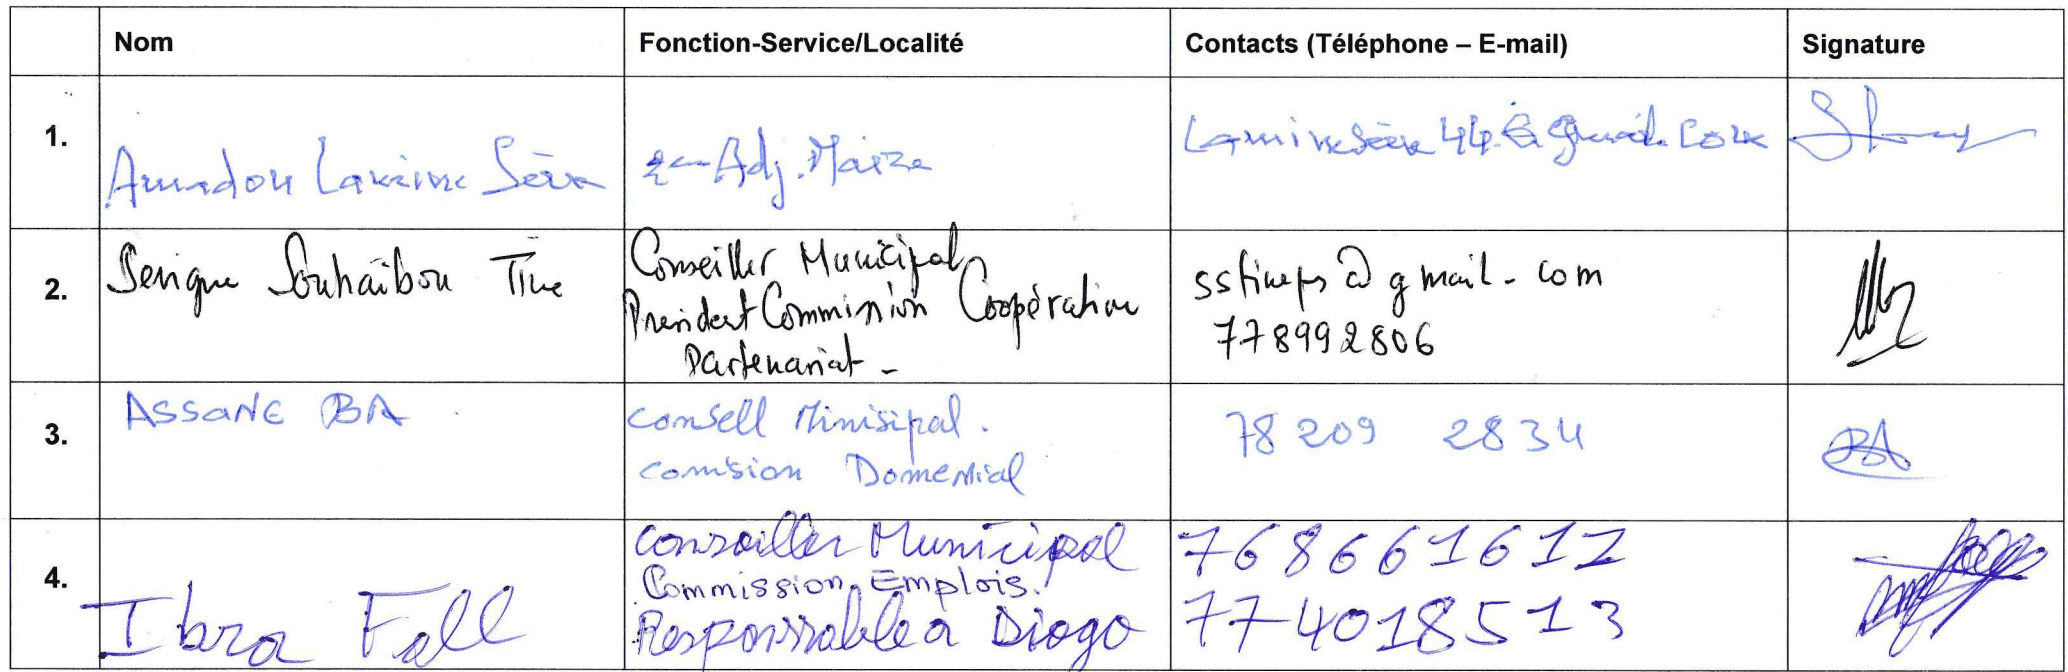 Nom Fonction-Service/Localité Contacts (Téléphone – E-mail) Signature
1. Amadou Lamine Sène 2em Adj. Maire
2. Serigne Souhaïbou Tine
Conseiller Municipal,
President Commission Coopération
Partenariat -
@gmail.com
778992806
3. ASSANE BA
Consell Minisipal.
comision Domenial
78 209 2834
BA
4. Ibra Fall
Conseiller Municipal
Commission Emplois.
Responssable a Diogo
768661612
774018513